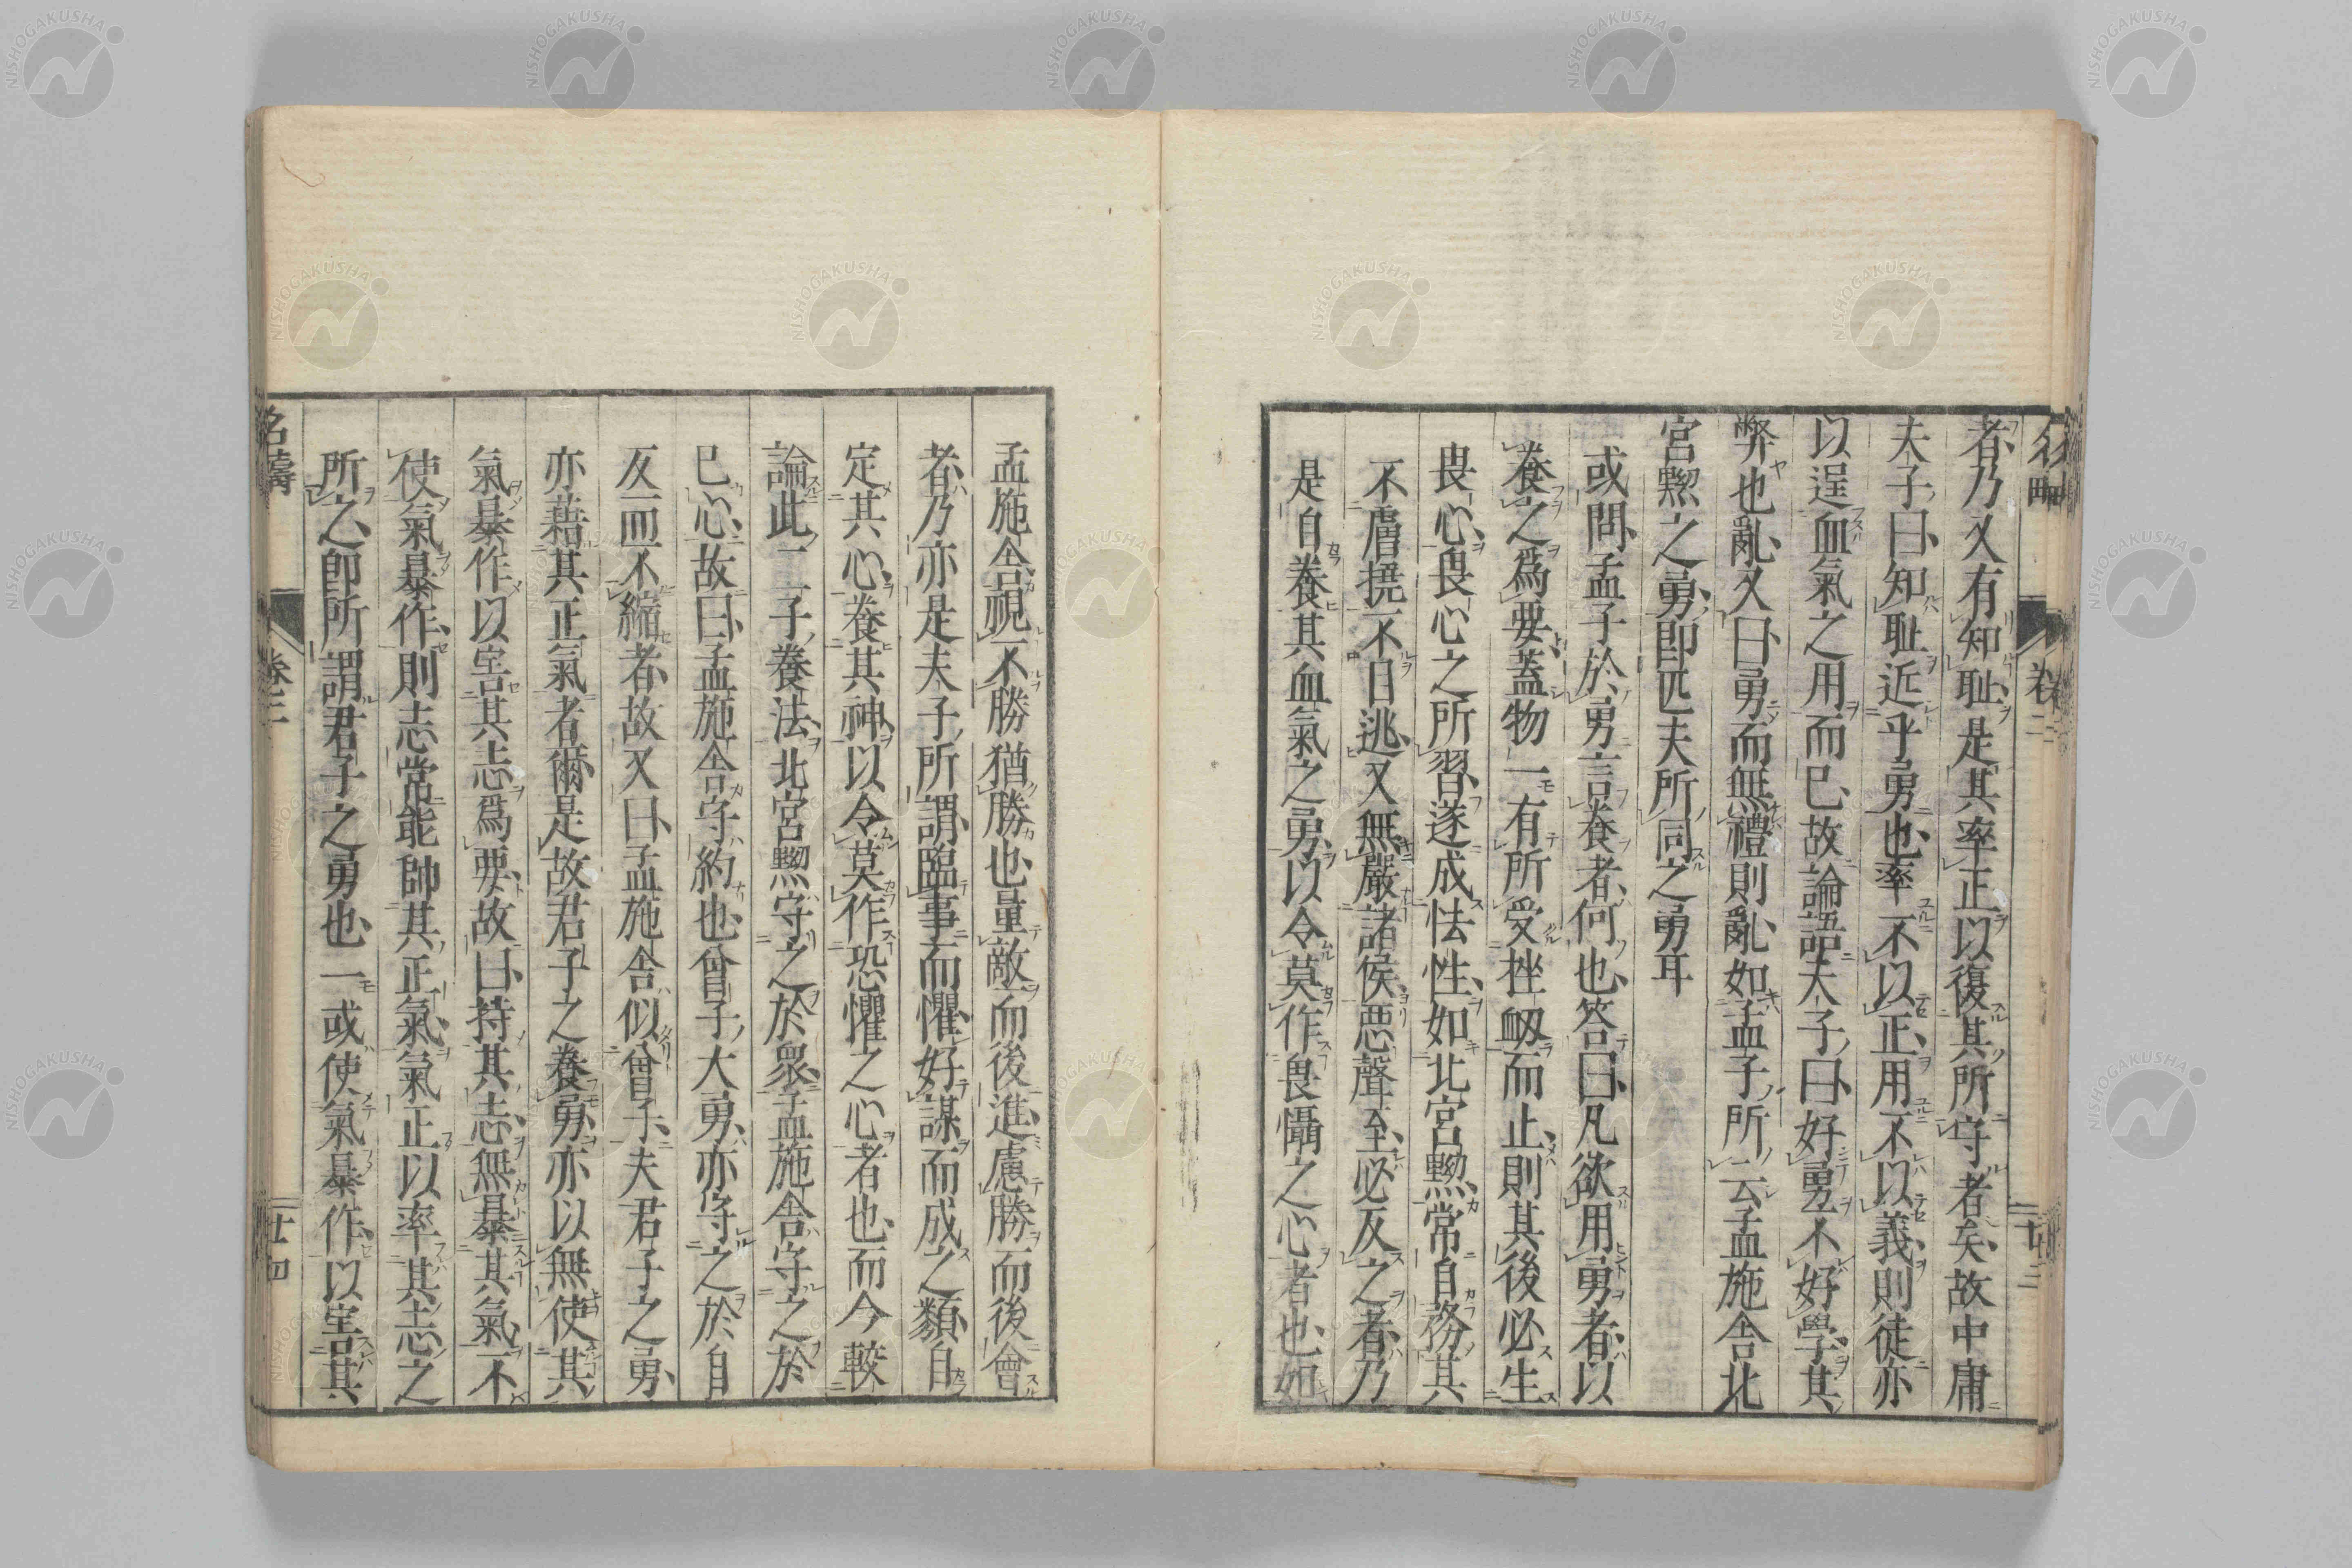 者乃又有知耻是其率正以復其所守者矣故中庸
夫子曰知耻近乎勇也率不以正用不以義則徒亦
以逞血氣之用而已故論語夫子曰好勇不好學其
弊也亂又曰勇而無禮則亂如孟子所云孟施舍北
宮黝之勇即匹夫所同之勇耳
或問孟子於勇言養者何也答曰凡欲用勇者以
養之爲要蓋物一有所受挫衂而止則其後必生
畏心畏心之所習遂成怯性如北宮黝常自務其
不膚撓不目逃又無嚴諸侯惡聲至必反之者乃
是自養其血氣之勇以令莫作畏懾之心者也如
卷二
孟施舍視不勝猶勝也量敵而後進慮勝而後會
者乃亦是夫子所謂臨事而懼好謀而成之類自
定其心養其神以令莫作恐懼之心者也而今較
論此二子養法北宮黝守之於衆孟施舍守之於
已心故曰孟施舍守約也曾子大勇亦守之於自
反而不縮者故又曰孟施舍似曾子夫君子之勇
亦藉其正氣者爾是故君子之養勇亦以無使其
氣暴作以害其志爲要故曰持其志無暴其氣不
使氣暴作則志常能帥其正氣氣正以率其志之
所之即所謂君子之勇也一或使氣暴作以害其
名疇
卷二
廿四
NISHOGAKUSHA